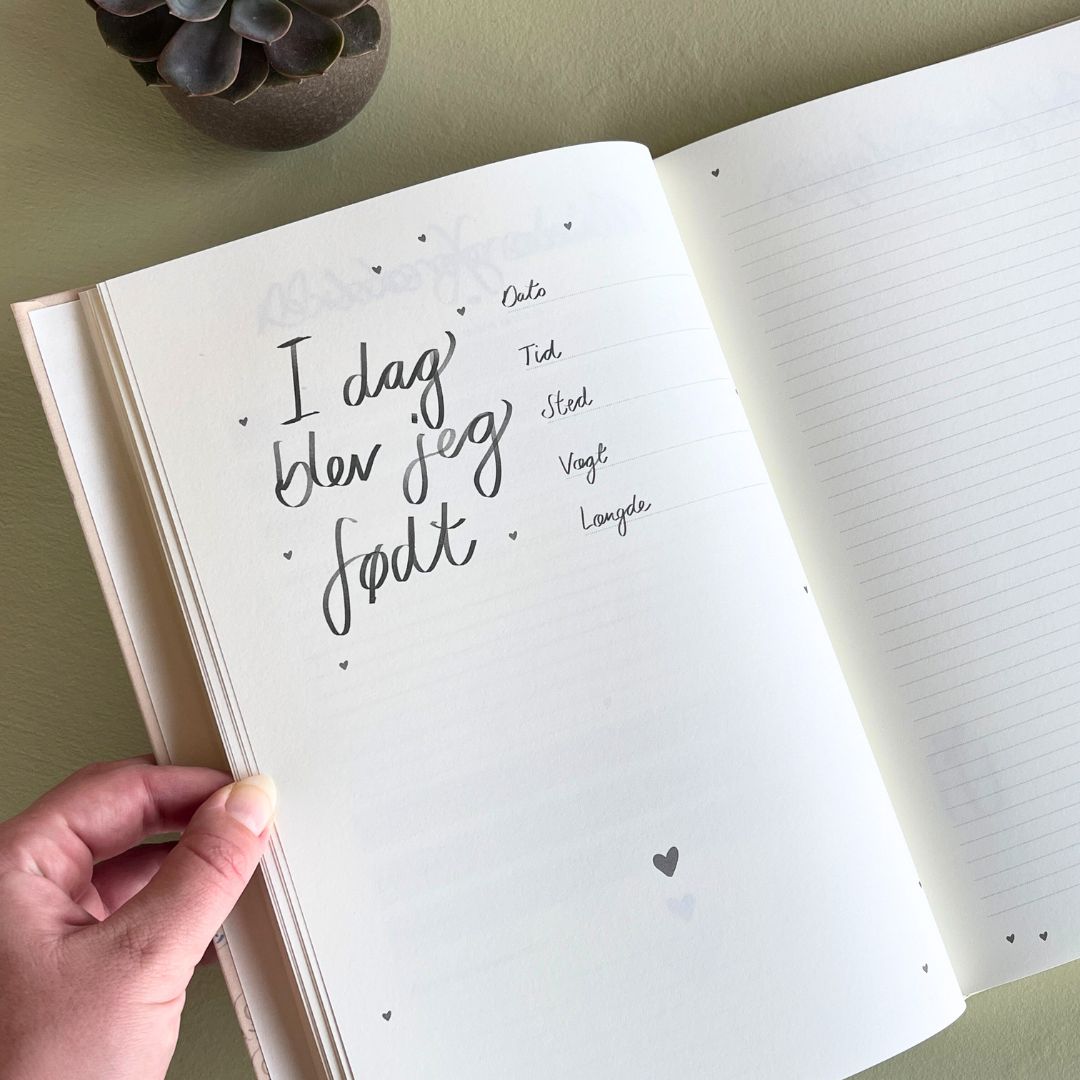 I dag
blev jeg
født
Dato
Tid
Sted
Vægt
Længde